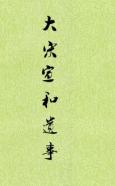 大宋宣和遺事